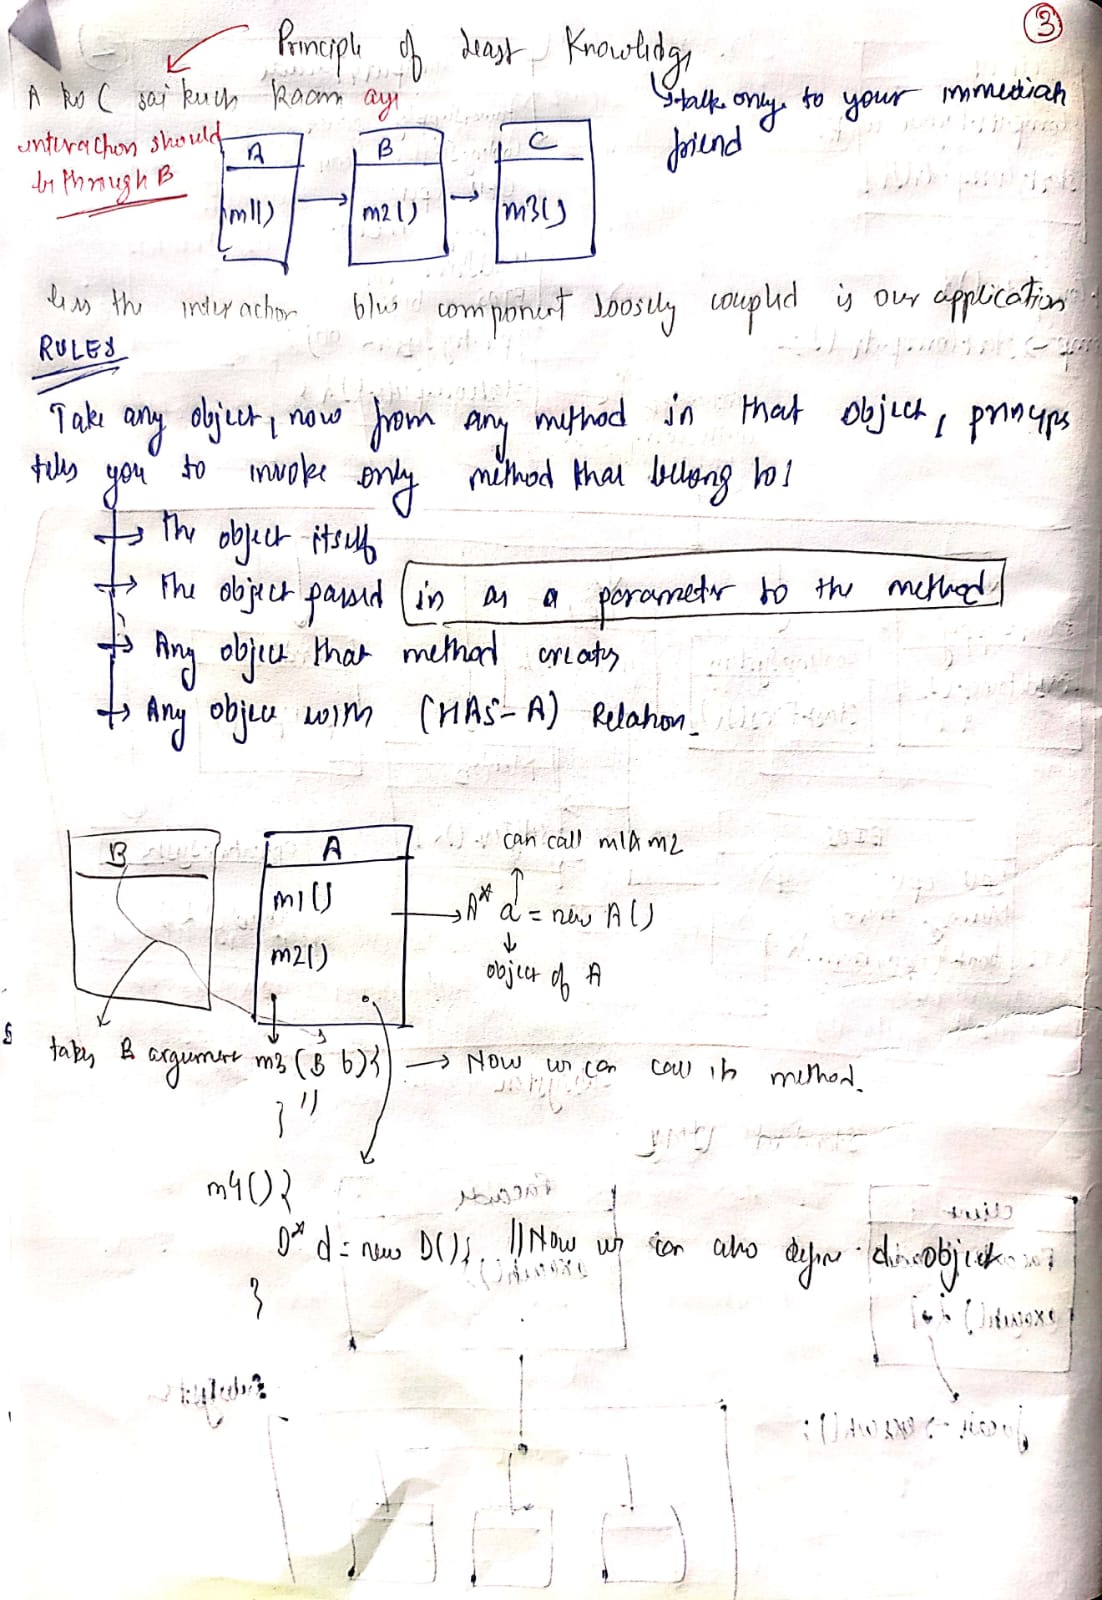 3
Principle of Least Knowledge
↳ talk only to your immediate
friend
A ko C sai kuch kaam aye
interaction should
be through B
A
B
C
m1()
m2()
m3()
less the interaction b/w component loosely coupled is our application
RULES
Take any object, now from any method in that object, principle
tells you to invoke only method that belong to:
→ The object itself
→ The object passed in as a parameter to the method
→ Any object that method creates
→ Any object with (HAS-A) Relation.
B
A
can call m1 & m2
m1()
A* a = new A()
m2()
object of A
takes B argument m3(B b){ → Now we can call its method.
} "
m4(){
D* d = new D(); //Now we can also define d object
}